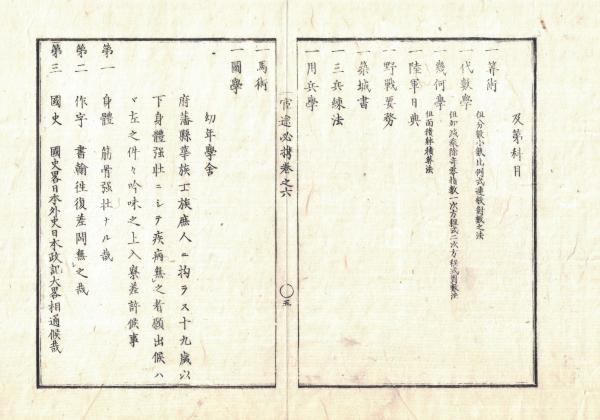 及第科目
一算術
但分數小數比例式連數對數之法
一代數學
但加減乘除奇零指數一次方程式二次方程式對數法
一幾何學
但面積体積算法
一陸軍日典
一野戰要務
一築城書
一三兵練法
一用兵學
官途必携巻之六
五
一馬術
一國學
幼年學舍
府藩縣華族士族庶人ニ拘ラス十九歲以
下身體強壯ニシテ疾病無之者願出候ハ
ヾ左之件々吟味之上入寮差許候事
第一 身體 筋骨强壯ナル哉
第二 作字 書翰徃復差閊無之哉
第三 國史 國史畧日本外史日本政記大畧相通候哉